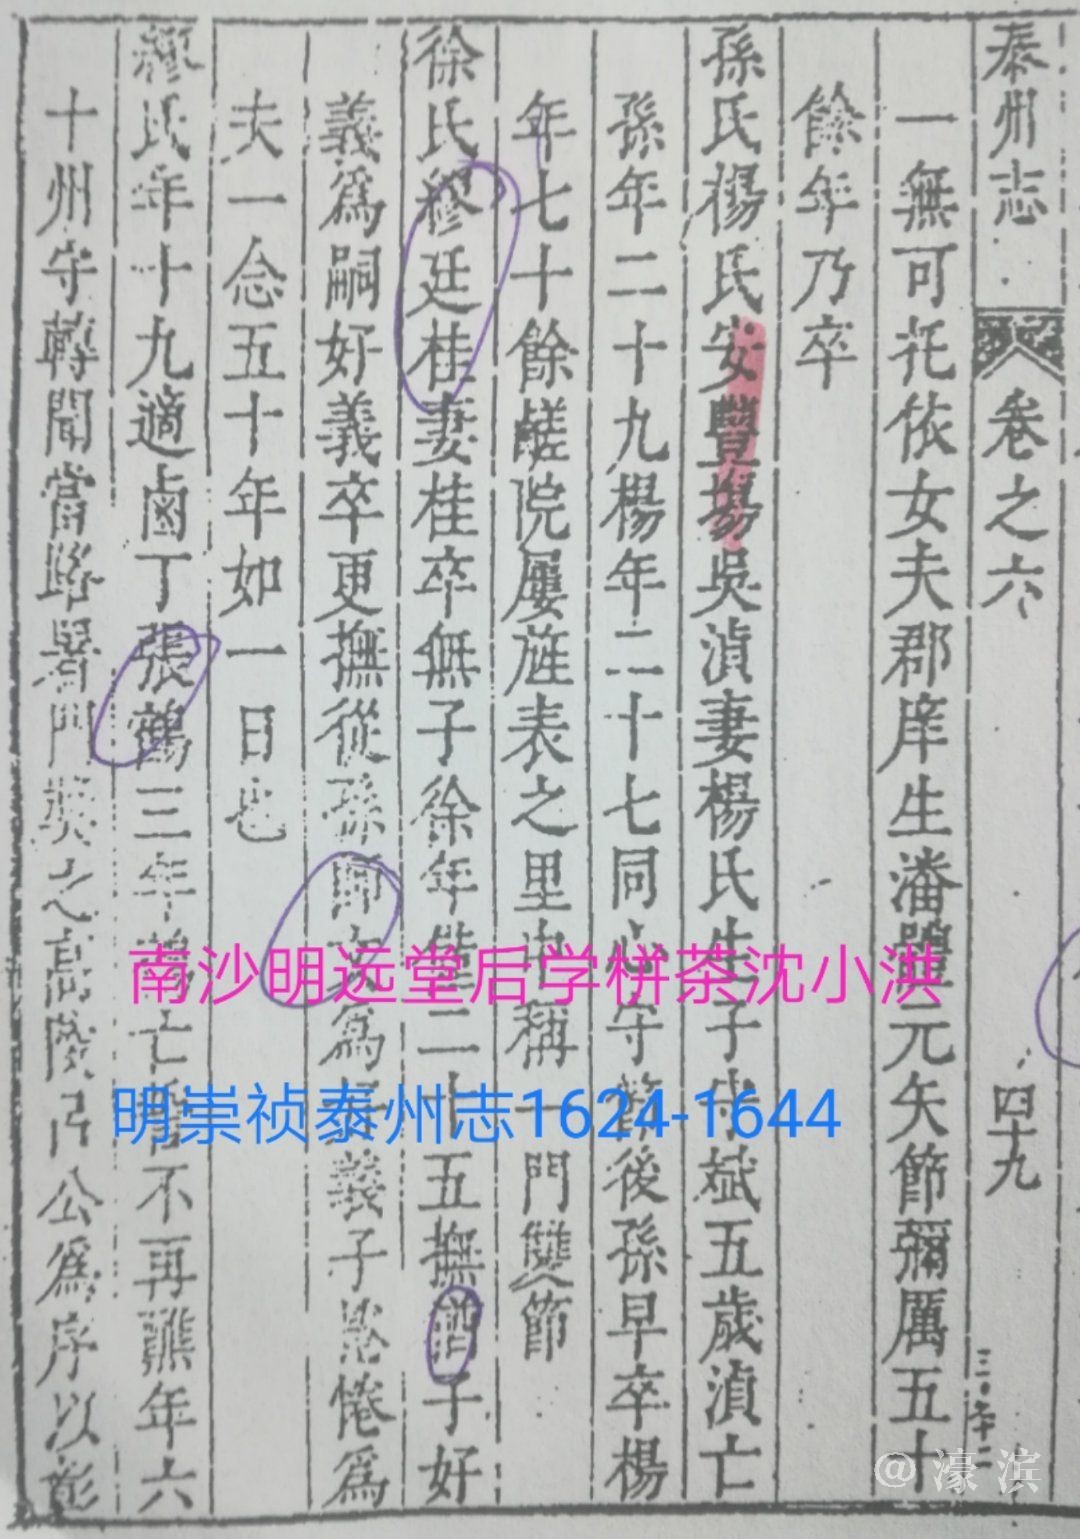 泰州志 卷之六 四九
一無可托依女夫郡庠生潘元矢節彌厲五十
餘年乃卒
孫氏楊氏安豐場吳滇妻楊氏生子守斌五歲滇亡
孫年二十九楊年二十七同心守節後孫早卒楊
年七十餘鹺院屢旌表之里中稱一門雙節
徐氏繆廷桂妻桂卒無子徐年二十五撫子好
義為嗣好義卒更撫從孫為好義子惓惓為
夫一念五十年如一日也
繆氏年十九適鹵丁張鶴三年鶴亡誓不再醮年六
十州守轉聞當路署門獎之高陵呂公為序以彰
南沙明远堂后学栟茶沈小洪
明崇祯泰州志1624-1644
@濠滨